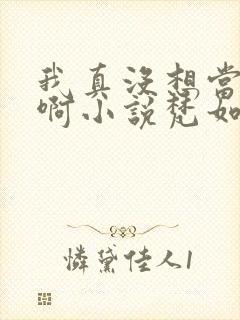 我真没想当
啊小说梵如
怜黛佳人1